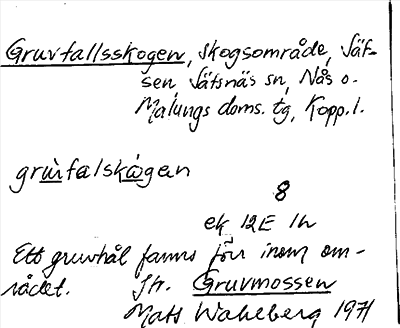 Gruvfallsskogen, skogsområde, Säf-
sen, Säfsnäs sn, Nås o.
Malungs doms. tg, Kopp. l.
grùfalskògen
8
ek 12E 1h
Ett gruvhål fanns förr inom om-
rådet. Jfr. Gruvmossen
Mats Wahlberg 1971